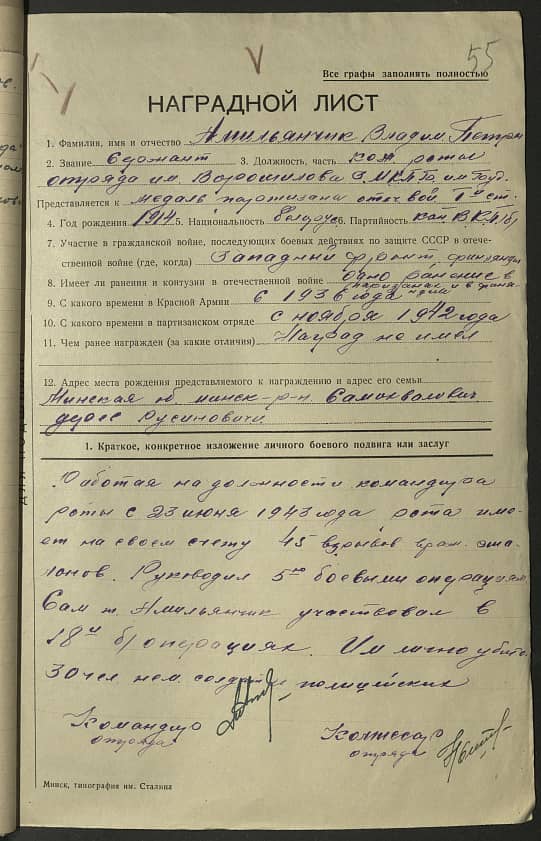 55
Все графы заполнять полностью
НАГРАДНОЙ ЛИСТ
1. Фамилия, имя и отчество Амильянчик Владим. Петров
2. Звание Сержант 3. Должность, часть ком. роты
отряда им. Ворошилова
Представляется к медаль партизана отечвой I й ст.
4. Год рождения 1914 5. Национальность белорус 6. Партийность кан В.К.П.(б)
7. Участие в гражданской войне, последующих боевых действиях по защите СССР в отече-
ственной войне (где, когда) Западный фронт, финляндия
8. Имеет ли ранения и контузии в отечественной войне одно ранение в
партизанах и в
9. С какого времени в Красной Армии с 1936 года
10. С какого времени в партизанском отряде с ноября 1942 года
11. Чем ранее награжден (за какие отличия) Наград не имел
12. Адрес места рождения представляемого к награждению и адрес его семьи
Минская об. минск-р-н. Самохвалович
Русиновичи
1. Краткое, конкретное изложение личного боевого подвига или заслуг
Работая на должности командира
роты с 23 июня 1943 года, рота име-
ет на своем счету 45 взрывов враж. эша-
лонов. Руководил 5ю боевыми операциям
Сам т. Амильянчик участвовал в
18и б/операциях. Им лично убито
30 чел нем. солдат и полицейских
Командир
отряда
Комиссар
отряда
Минск, типография им. Сталина